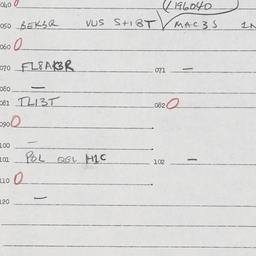 040 0 196040
050 BEKBR VUS S+18T MAC3S 1A
060 0
070 FL8AKBR 071 —
080 —
081 TL13T 082 0
090 0
100 —
101 POL H1C 102 —
110 0
120 —